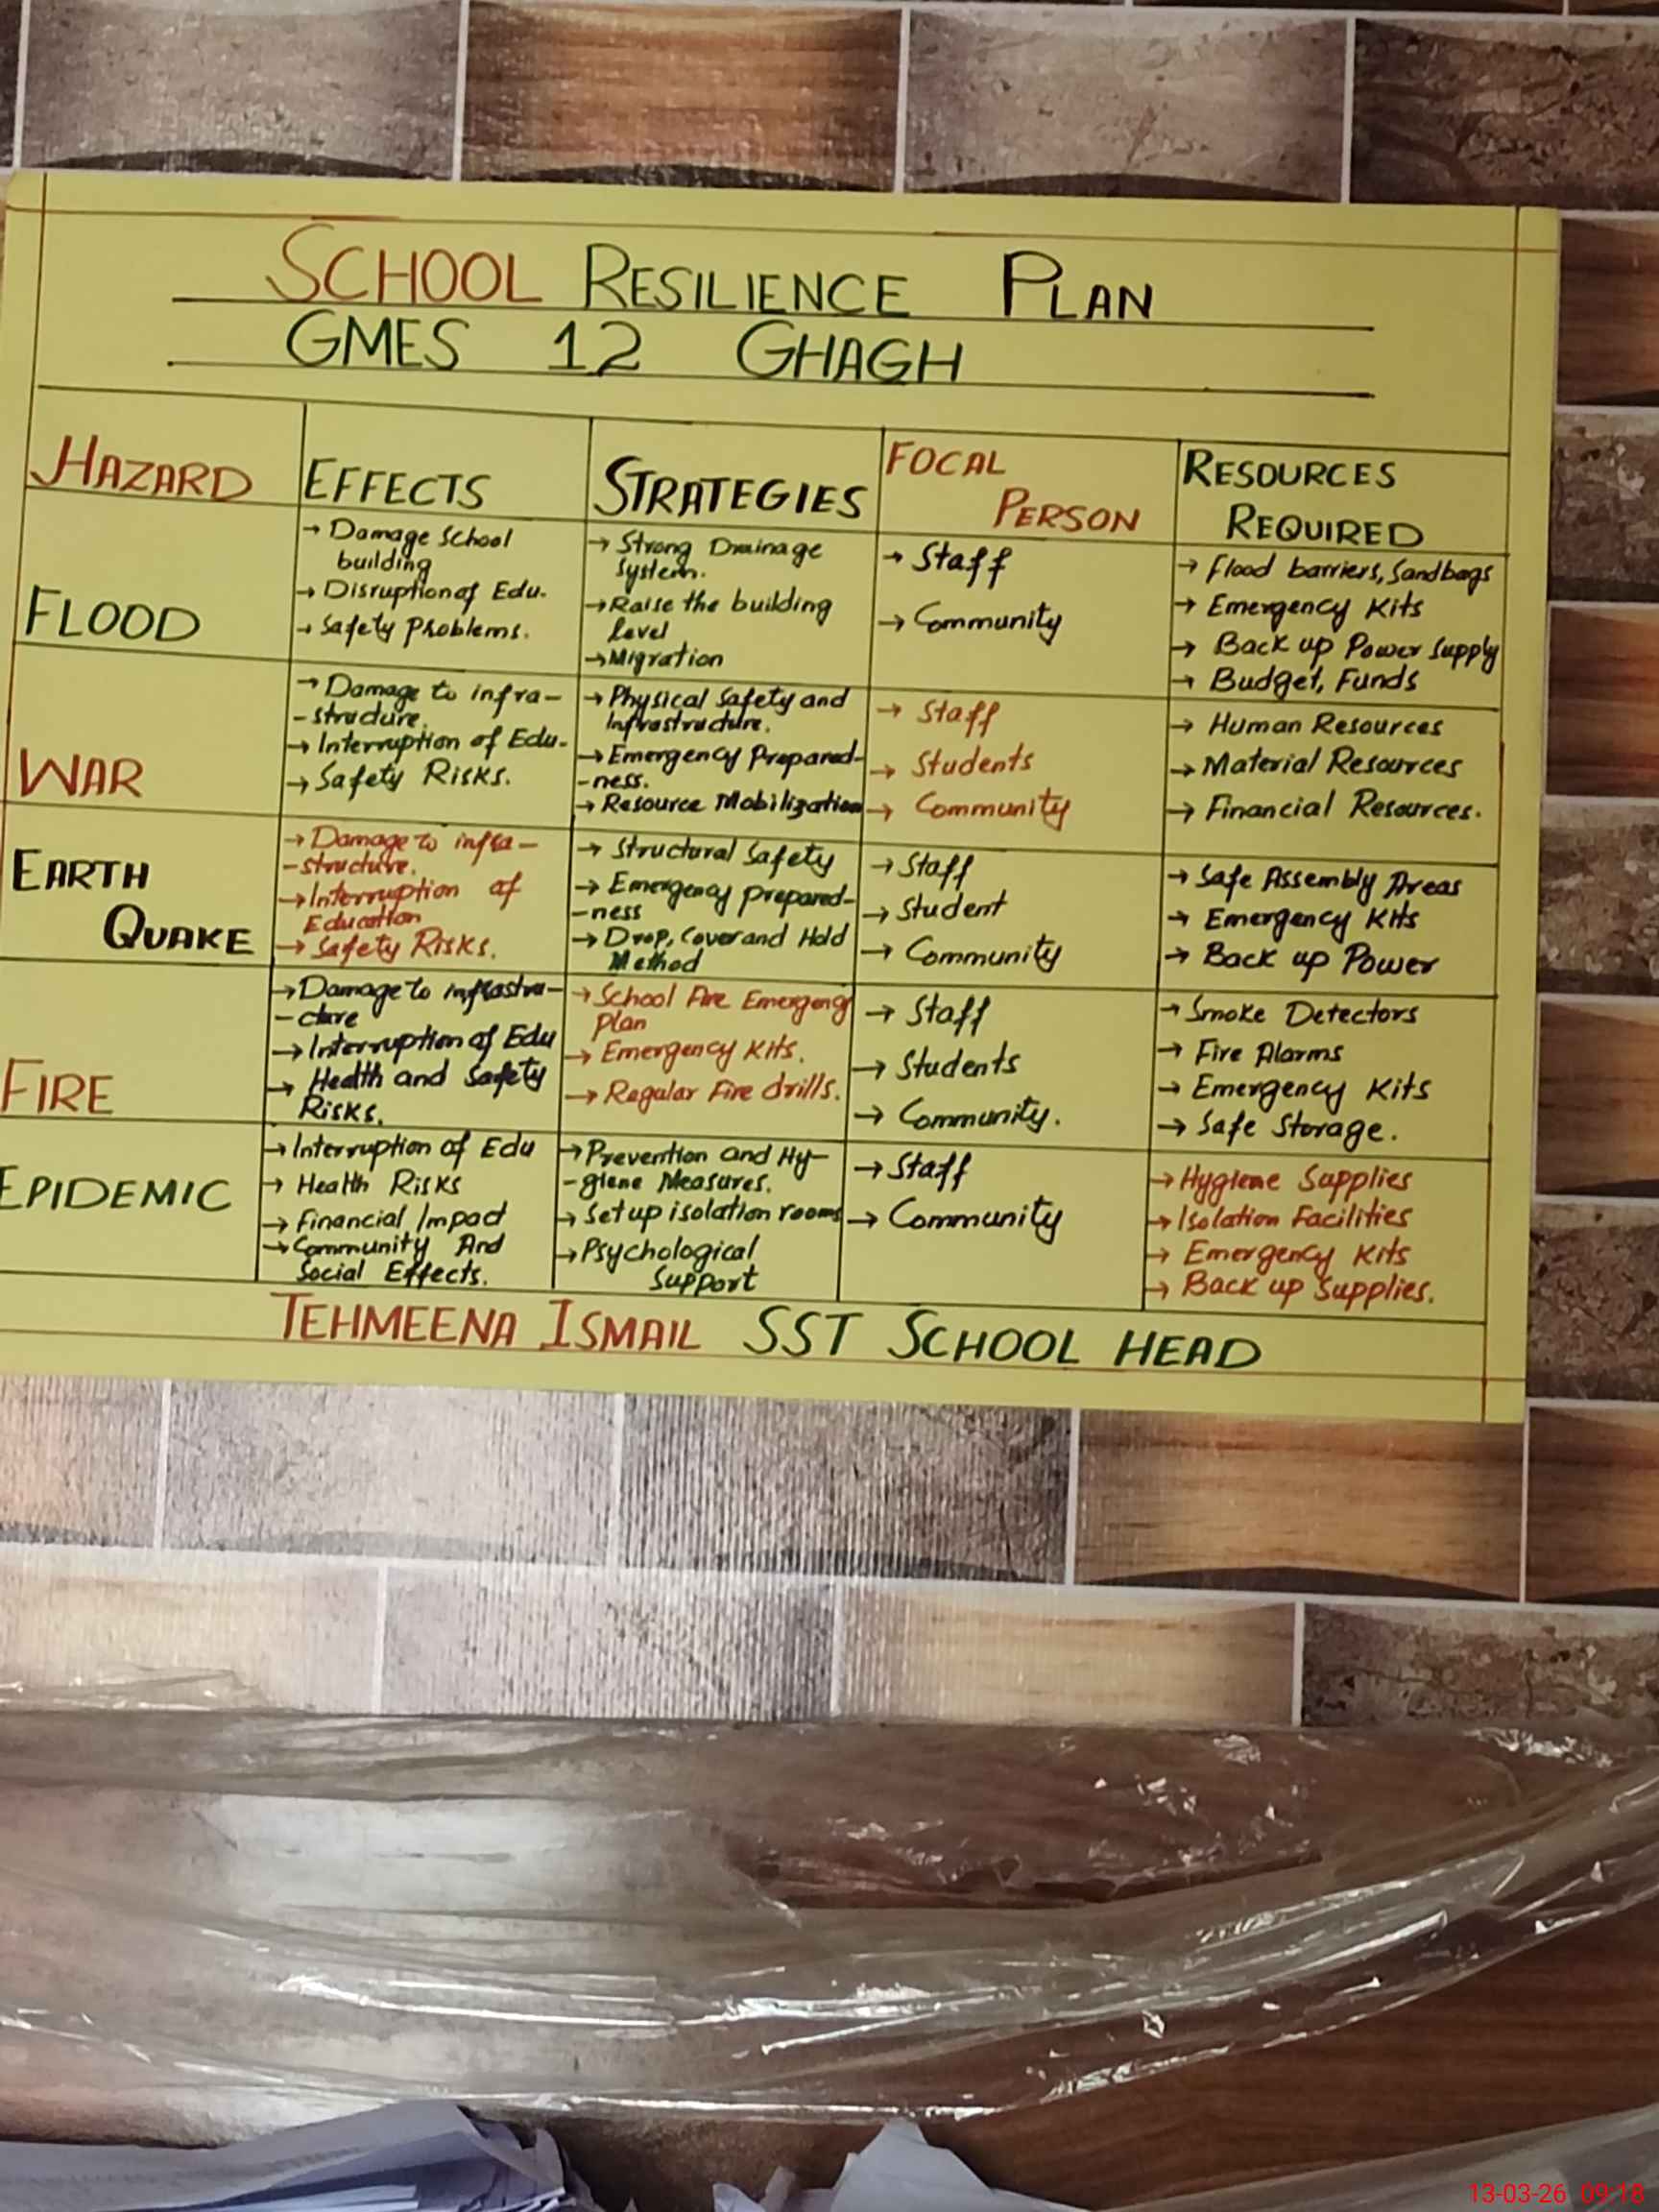 SCHOOL RESILIENCE PLAN
GMES 12 GHAGH
HAZARD
EFFECTS
STRATEGIES
FOCAL
PERSON
RESOURCES
REQUIRED
FLOOD
→ Damage School
building
→ Disruption of Edu.
→ Safety Problems.
→ Strong Drainage
System.
→ Raise the building
level
→ Migration
→ Staff
→ Community
→ Flood barriers, Sandbags
→ Emergency Kits
→ Back up Power Supply
→ Budget, Funds
WAR
→ Damage to infra-
-structure.
→ Interruption of Edu-
→ Safety Risks.
→ Physical Safety and
Infrastructure.
→ Emergency Prepared-
-ness.
→ Resource Mobilization
→ Staff
→ Students
→ Community
→ Human Resources
→ Material Resources
→ Financial Resources.
EARTH
QUAKE
→ Damage to infra-
-structure.
→ Interruption of
Education
→ Safety Risks.
→ Structural Safety
→ Emergency prepared-
-ness
→ Drop, Cover and Hold
Method
→ Staff
→ Student
→ Community
→ Safe Assembly Areas
→ Emergency Kits
→ Back up Power
FIRE
→ Damage to infrastru-
-cture
→ Interruption of Edu
→ Health and Safety
Risks.
→ School Fire Emergency
Plan
→ Emergency Kits.
→ Regular Fire drills.
→ Staff
→ Students
→ Community.
→ Smoke Detectors
→ Fire Alarms
→ Emergency Kits
→ Safe Storage.
EPIDEMIC
→ Interruption of Edu
→ Health Risks
→ Financial Impact
→ Community And
Social Effects.
→ Prevention and Hy-
-giene Measures.
→ Set up isolation rooms
→ Psychological
Support
→ Staff
→ Community
→ Hygiene Supplies
→ Isolation Facilities
→ Emergency Kits
→ Back up Supplies.
TEHMEENA ISMAIL SST SCHOOL HEAD
13-03-26 09:18